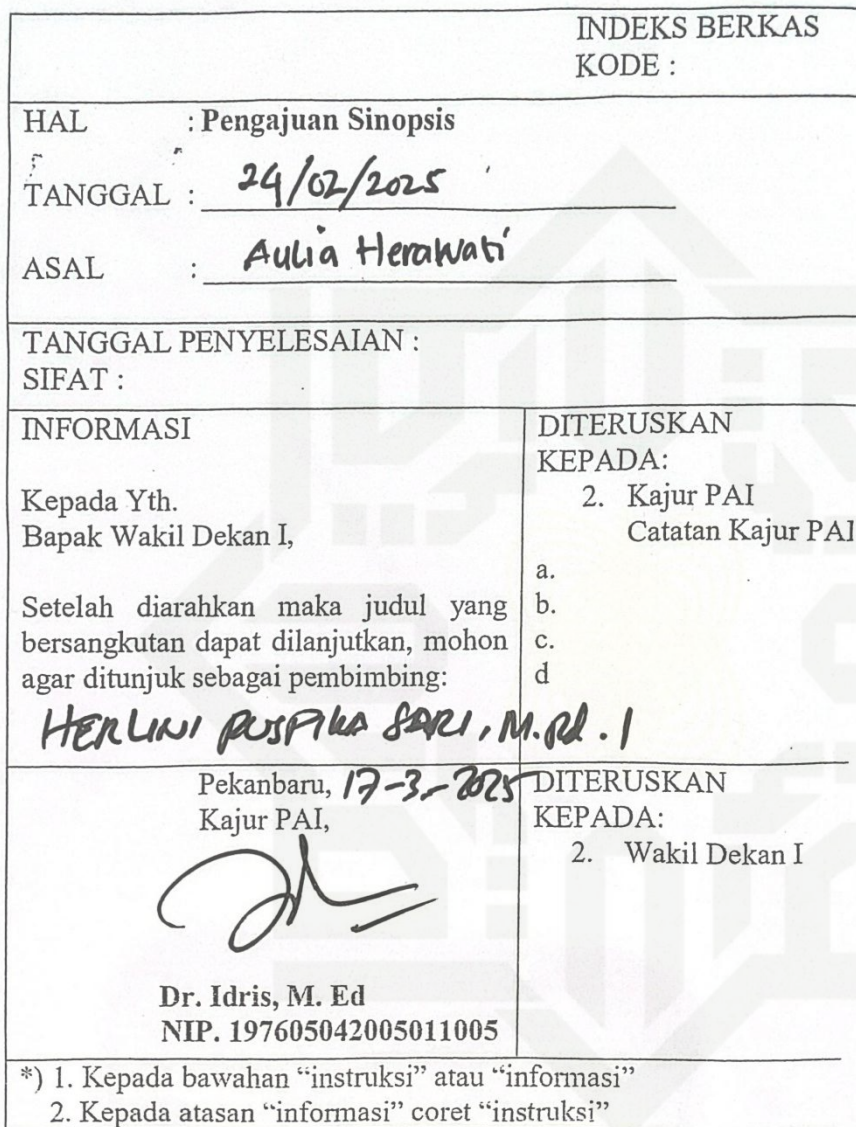 INDEKS BERKAS
KODE :
HAL : Pengajuan Sinopsis
TANGGAL : 24/02/2025
ASAL : Aulia Herawati
TANGGAL PENYELESAIAN :
SIFAT :
INFORMASI
Kepada Yth.
Bapak Wakil Dekan I,
Setelah diarahkan maka judul yang
bersangkutan dapat dilanjutkan, mohon
agar ditunjuk sebagai pembimbing:
HERLINI PUSPIKA SARI, M.Pd.I
DITERUSKAN
KEPADA:
2. Kajur PAI
Catatan Kajur PAI
a.
b.
c.
d
Pekanbaru, 17-3-2025
Kajur PAI,
Dr. Idris, M. Ed
NIP. 197605042005011005
DITERUSKAN
KEPADA:
2. Wakil Dekan I
*) 1. Kepada bawahan “instruksi” atau “informasi”
2. Kepada atasan “informasi” coret “instruksi”